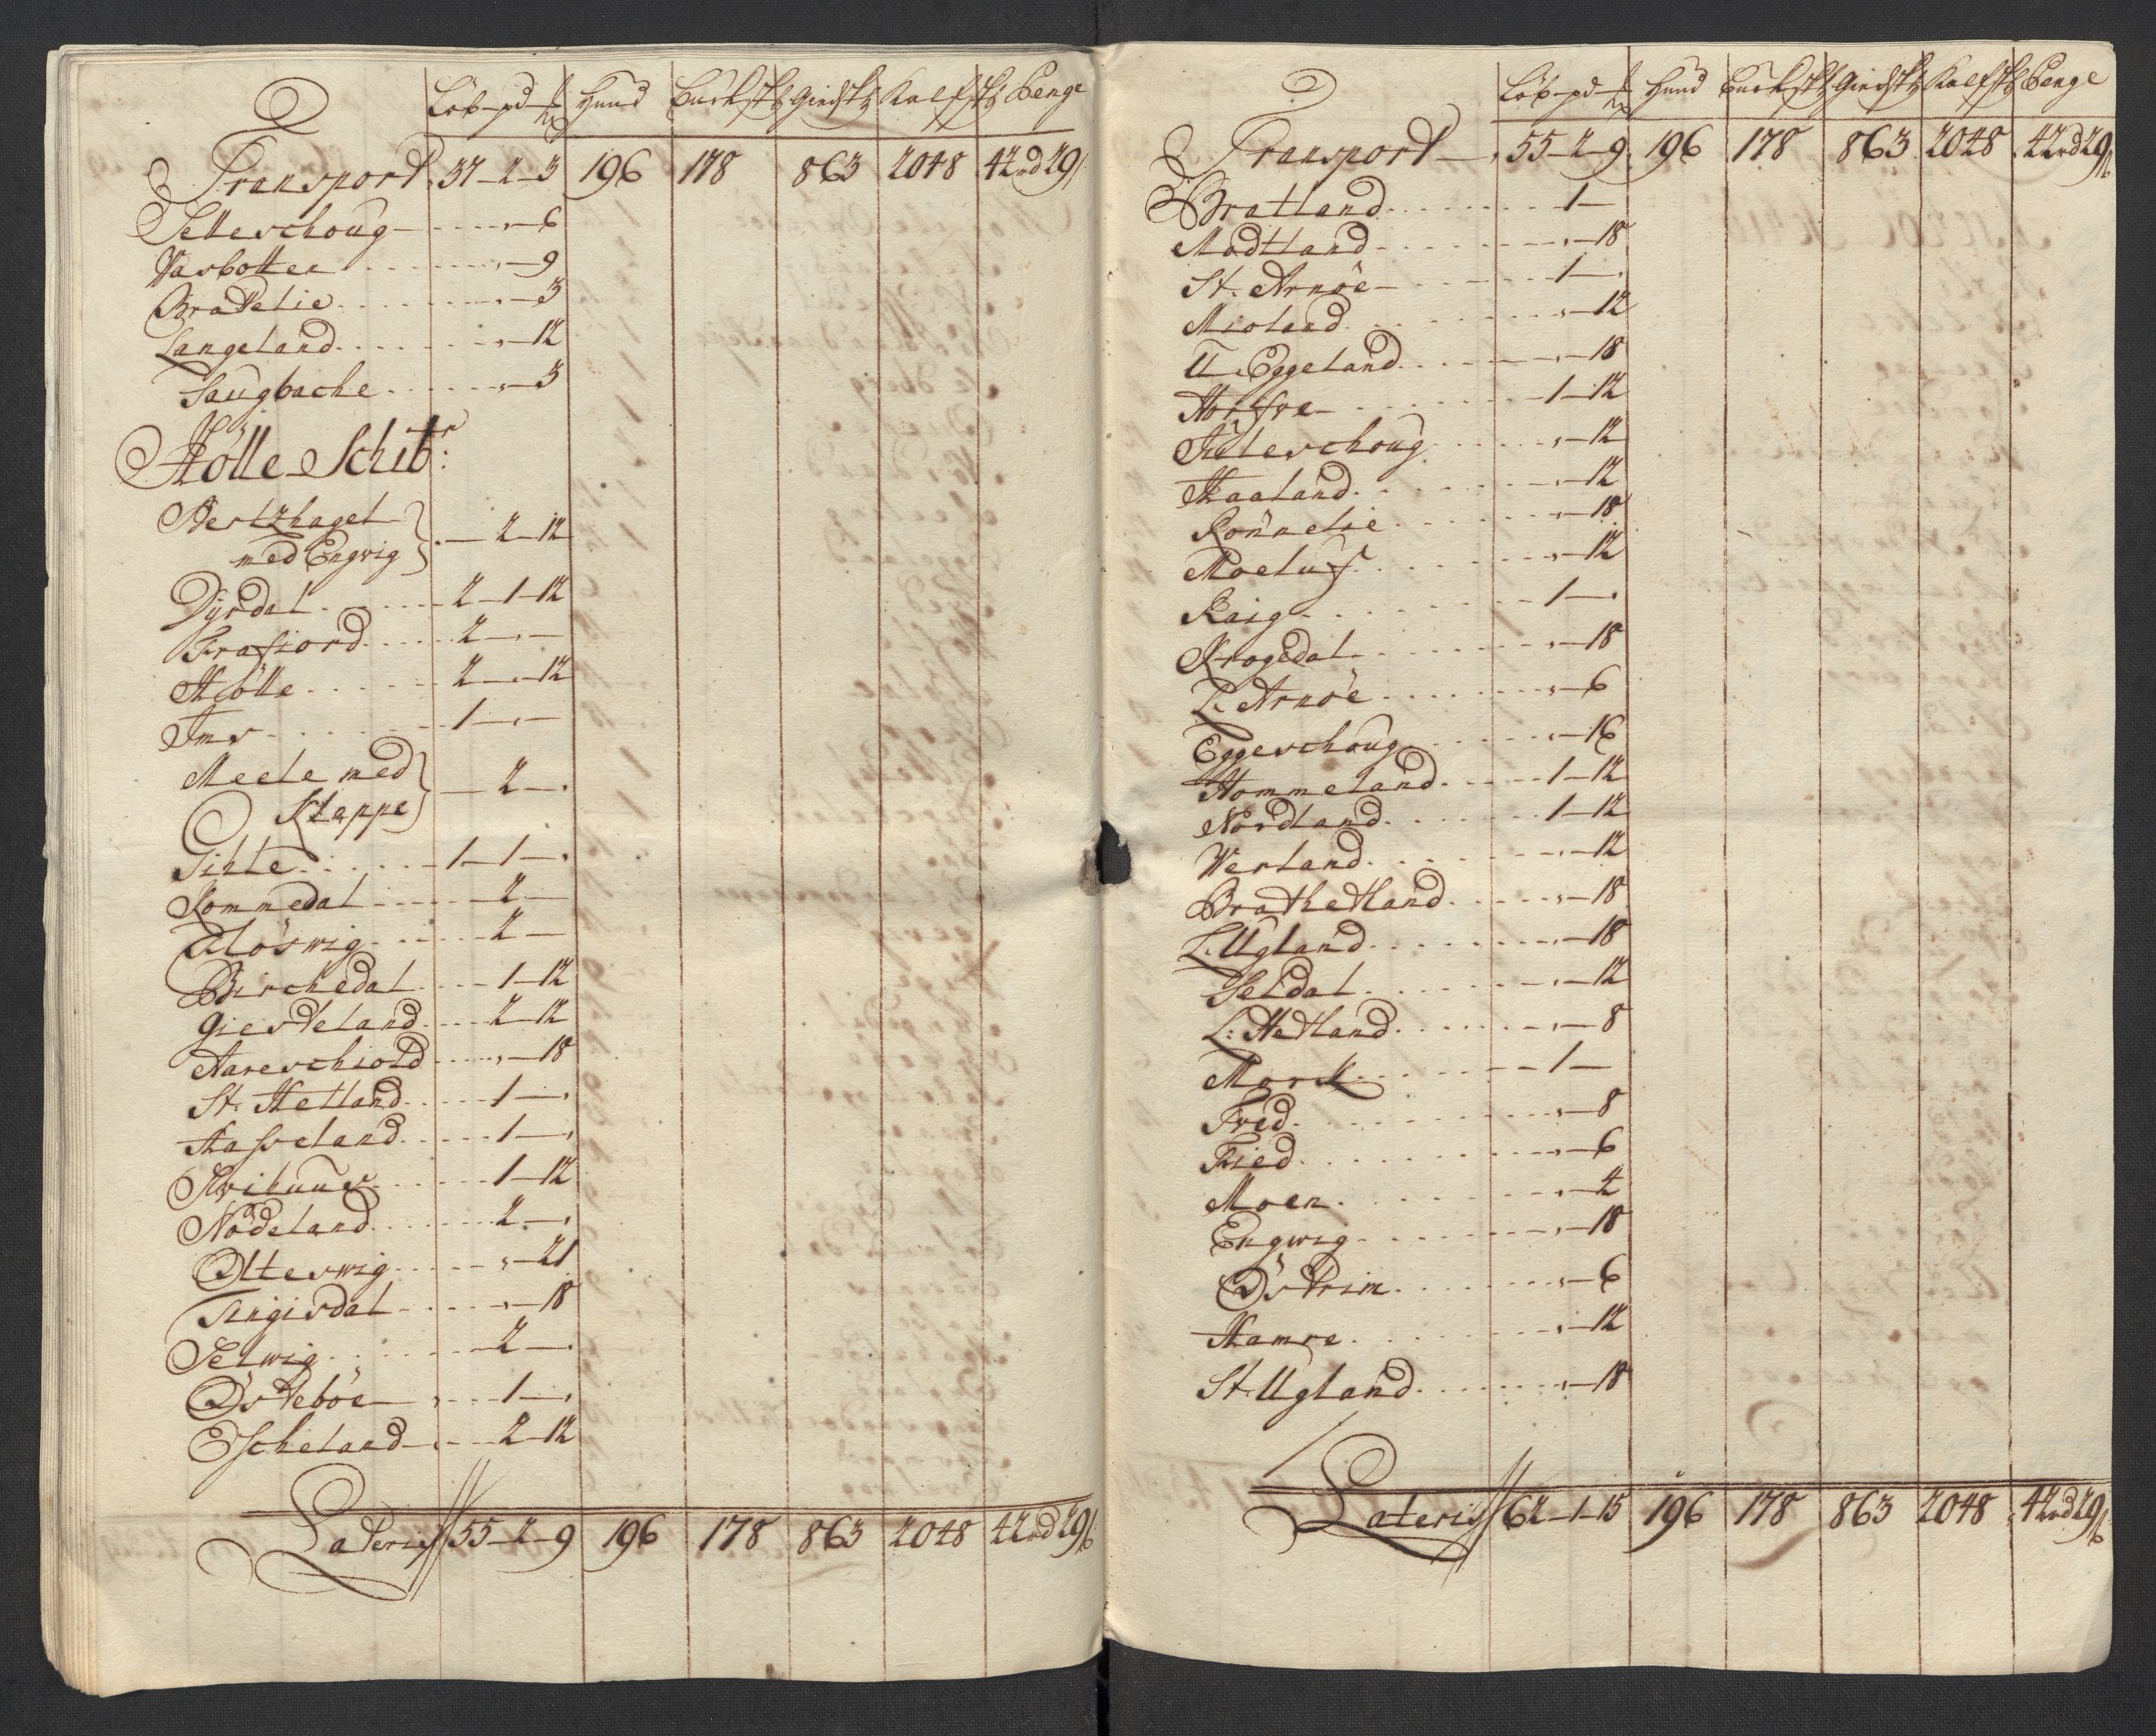 Löb - pd - ℔ Hund Bucksk: Giedsk: Kalfsk: Penge
Transport 37-2-3 196 178 863 2048 42rd 29ß
Selleschoug - 6
Vasbotten - 9
Bratelie - 3
Langeland - 12
Saugbache - 3
Hölle Schibr:
Hertzhagel
med Engvig - 2-12
Dyrdal 2-1-12
Frafiord 2 - -
Hölle 2 - -12
Ims 1 - -
Meele med
Kleppe - 2 -
Tihle 1-1-
Kommedal - 2 -
Eltöswig - 2 -
Birchedal 1-12
Giesteland 2-12
Aareschiold - 18
St. Hetland 1 -
Hasseland 1 -
Schibuues 1-12
Nödeland 2 -
Olteswig - 21
Tengisdal - 18
Selwig 2 -
Östeböe 1 -
Escheland 2-12
Lateris 55-2-9 196 178 863 2048 42rd 29ß
Löb - pd - ℔ Hund Bucksk: Giedsk: Kalfsk: Penge
Transport 55-2-9 196 178 863 2048 42rd 29ß
Bratland 1 -
Madtland - 18
St. Arnöe 1 -
Mioland - 12
U. Eggeland - 18
Horfve 1-12
Fileschoug - 12
Haaland - 12
Rönnelie - 18
Moeluf - 12
Raig 1 -
Krogedal - 18
L. Arnöe - 6
Eggeschoug - 16
Hommeland 1-12
Nordland 1-12
Werland - 12
Brathetland - 18
L. Ugland - 18
Seldal - 12
L: Hetland - 8
Mork 1 -
Fred - 8
Tied - 6
Moen - 4
Engwig - 18
Östrim - 6
Hamre - 12
St. Ugland - 18
Lateris 62-1-15 196 178 863 2048 42rd 29ß